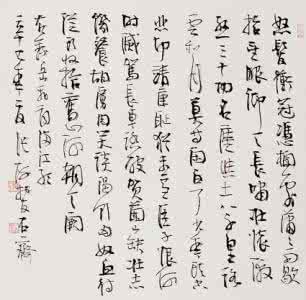 怒髮衝冠憑欄處瀟瀟雨歇
抬望眼仰天長嘯壯懷激
烈三十功名塵與土八千里路
雲和月莫等閒白了少年頭空
悲切靖康恥猶未雪臣子恨何
時滅駕長車踏破賀蘭山缺壯志
飢餐胡虜肉笑談渴飲匈奴血待
從頭收拾舊山河朝天闕
岳飛滿江紅